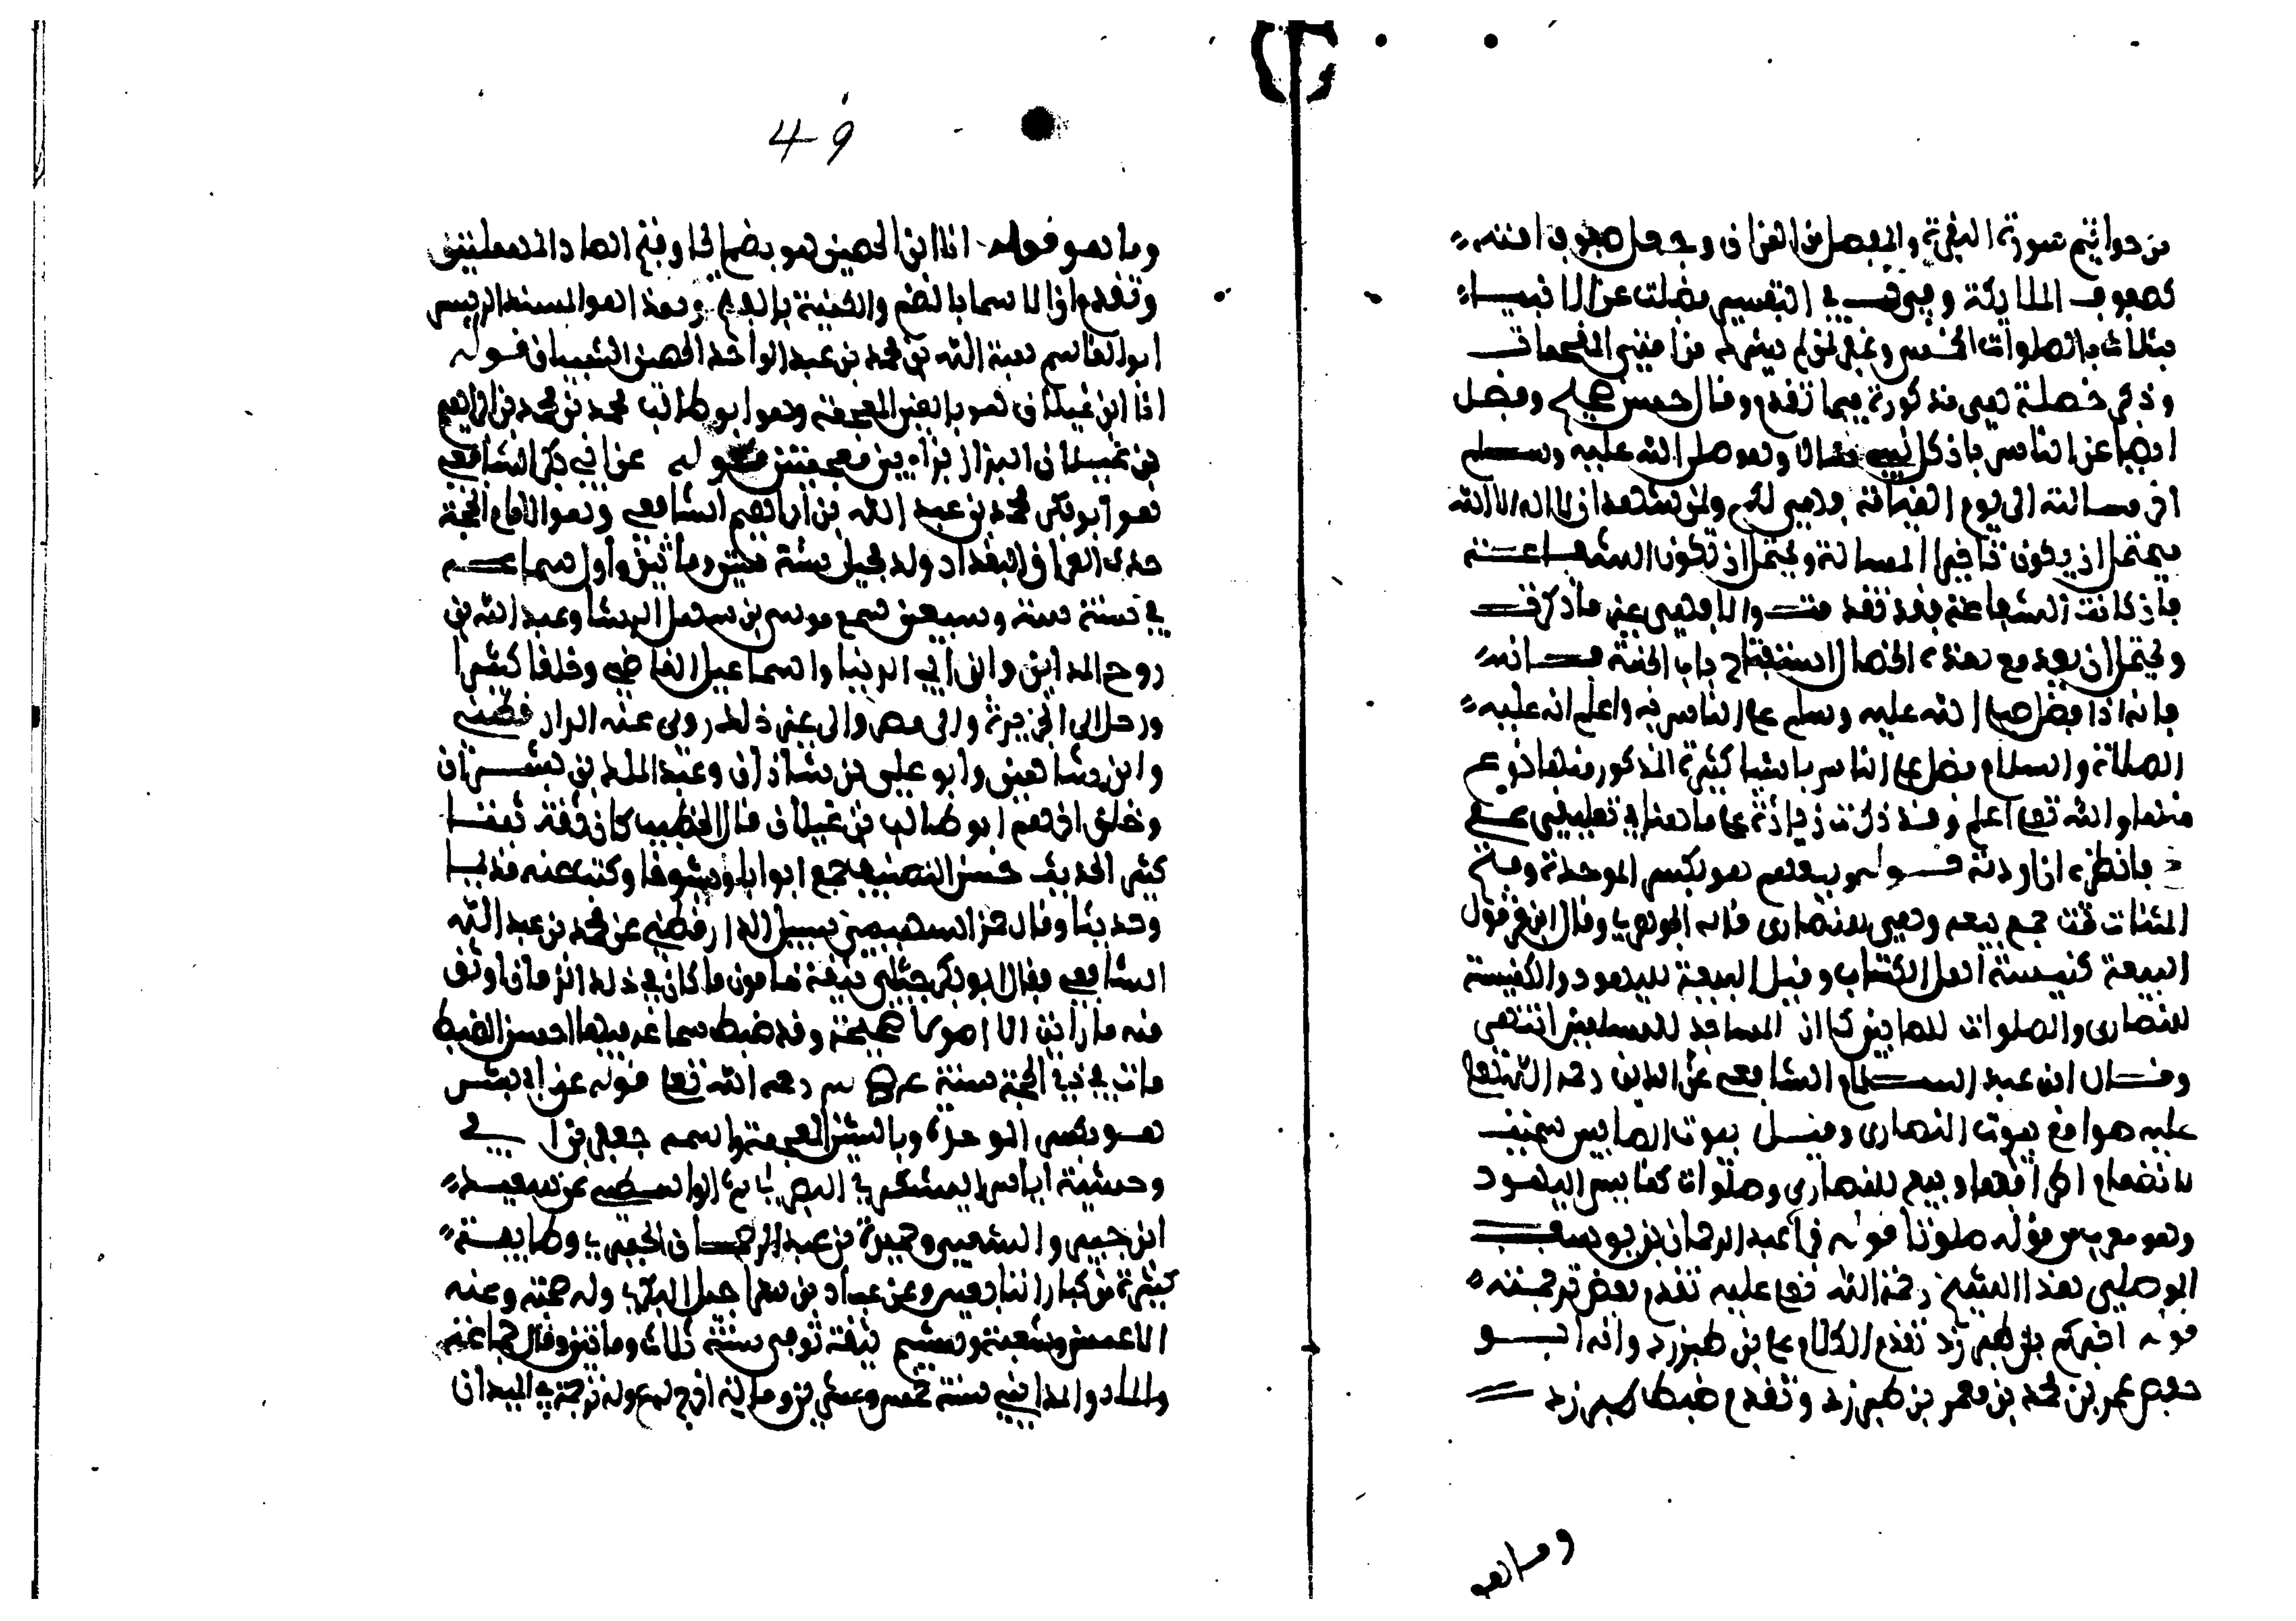 من خواتيم سورة البقرة والمفصل من القرآن وجعل صفوف امته
كصفوف الملائكة وفي التفسير فضلت عن الانبياء
بثلاث بالصلوات الخمس وغفر لمن لم يشرك من امتي المقحمات
وذكر خصلة هي مذكورة فيما تقدم وقال حسن صحيح وفضل
ايضا عن الناس بان كل نبي سال وهو صلى الله عليه وسلم
اخر مسالته الى يوم القيامة فهي لكم ولمن يشهد ان لا اله الا الله
فيحتمل ان يكون تاخير المسالة ويحتمل ان تكون الشفاعة
فان كانت الشفاعة فقد تقدمت والا فهي غير ما ذكرت
ويحتمل ان يعد مع هذه الخصال استفتاح باب الجنة
فانه اذا فضل صلى الله عليه وسلم على الناس به واعلم انه عليه
الصلاة والسلام فضل على الناس باشيا كثيرة المذكور منها نوع
منها والله تعالى اعلم وقد ذكرت زيادة على ما هنا في تعليقي على
فانظره ان اردته قوله وبيعهم هو بكسر الموحدة وفتح
المثناة تحت جمع بيعه وهي للنصارى قاله الجوهري وقال ابن قرقول
البيعة كنيسة اهل الكتاب وقيل البيعة لليهود والكنيسة
للنصارى والصلوات للصابين كما ان المساجد للمسلمين انتهى
وقال ابن عبد السلام الشافعي عز الدين رحمه الله تعالى
عليه صوامع بيوت النصارى وقيل بيوت الصابيين سميت
لانضمام اطرافها وبيع للنصارى وصلوات كنايس اليهود
وهو معرب من قوله صلوتا قوله قرا عبد الرحمان بن يوسف
الموصلي هذا الشيخ رحمه الله تعالى عليه تقدم بعض ترجمته
قوله اخبركم بن طبرزد تقدم الكلام على بن طبرزد وانه ابو
حفص عمر بن محمد بن معمر بن طبرزد وتقدم ضبط طبرزد
وما هو
49
وما هو قوله انا ابن الحصين هو بضم الحا وفتح الصاد المهملتين
وتقدم ان الاسما بالضم والكنية بالفتح وهذا هو المسند الرئيس
ابو القاسم هبة الله بن محمد بن عبد الواحد الحصين الشيباني قوله
انا ابن غيلان هو بالغين المعجمة وهو ابو طالب محمد بن محمد بن ابراهيم
بن غيلان البزاز بزايين معجمتين قوله عن ابي بكر الشافعي
هو ابو بكر محمد بن عبد الله بن ابراهيم الشافعي وهو الامام الحجة
محدث العراق البغداد ولد بجبل سنة ستين ومايتين واول سماعه
في سنة ستة وسبعين سمع موسى بن سهل الوشا وعبد الله بن
روح المداين وابن ابي الدنيا واسماعيل القاضي وخلقا كثيرا
ورحل الى الجزيرة والى مصر والى غير ذلك روى عنه الدارقطني
وابن شاهين وابو علي بن شاذان وعبد الملك بن بشران
وخلق اخرهم ابو طالب بن غيلان قال الخطيب كان ثقة ثبتا
كثير الحديث حسن التصنيف جمع ابوابا وشيوخا وكتب عنه قديما
وحديثا وقال حمزة السهمي سيل الدارقطني عن محمد بن عبد الله
الشافعي فقال ابو بكر جبلي ثقة مامون ما كان في ذلك الزمان اوثق
منه ما رايت الا اصولا صحيحة وقد ضبط سماعه فيها احسن الضبط
مات في ذي الحجة سنة رحمه الله تعالى قوله عن ابي بشر
هو بكسر الموحدة وبالشين المعجمة واسمه جعفر بن ابي
وحشية اياس اليشكري البصري الواسطي عن سعيد
ابن جبير والشعبي وحميد بن عبد الرحمان الحميري وطايفة
كثيرة من كبار التابعين وعن عباد بن شرحبيل اليشكري وله صحبة وعنه
الاعمش وشعبة وهشيم ثقة توفي سنة ثلاث ومايتين وقال جماعة
والمداني سنة خمس وعشرين وماية اخرج له ع وله ترجمة في الميزان